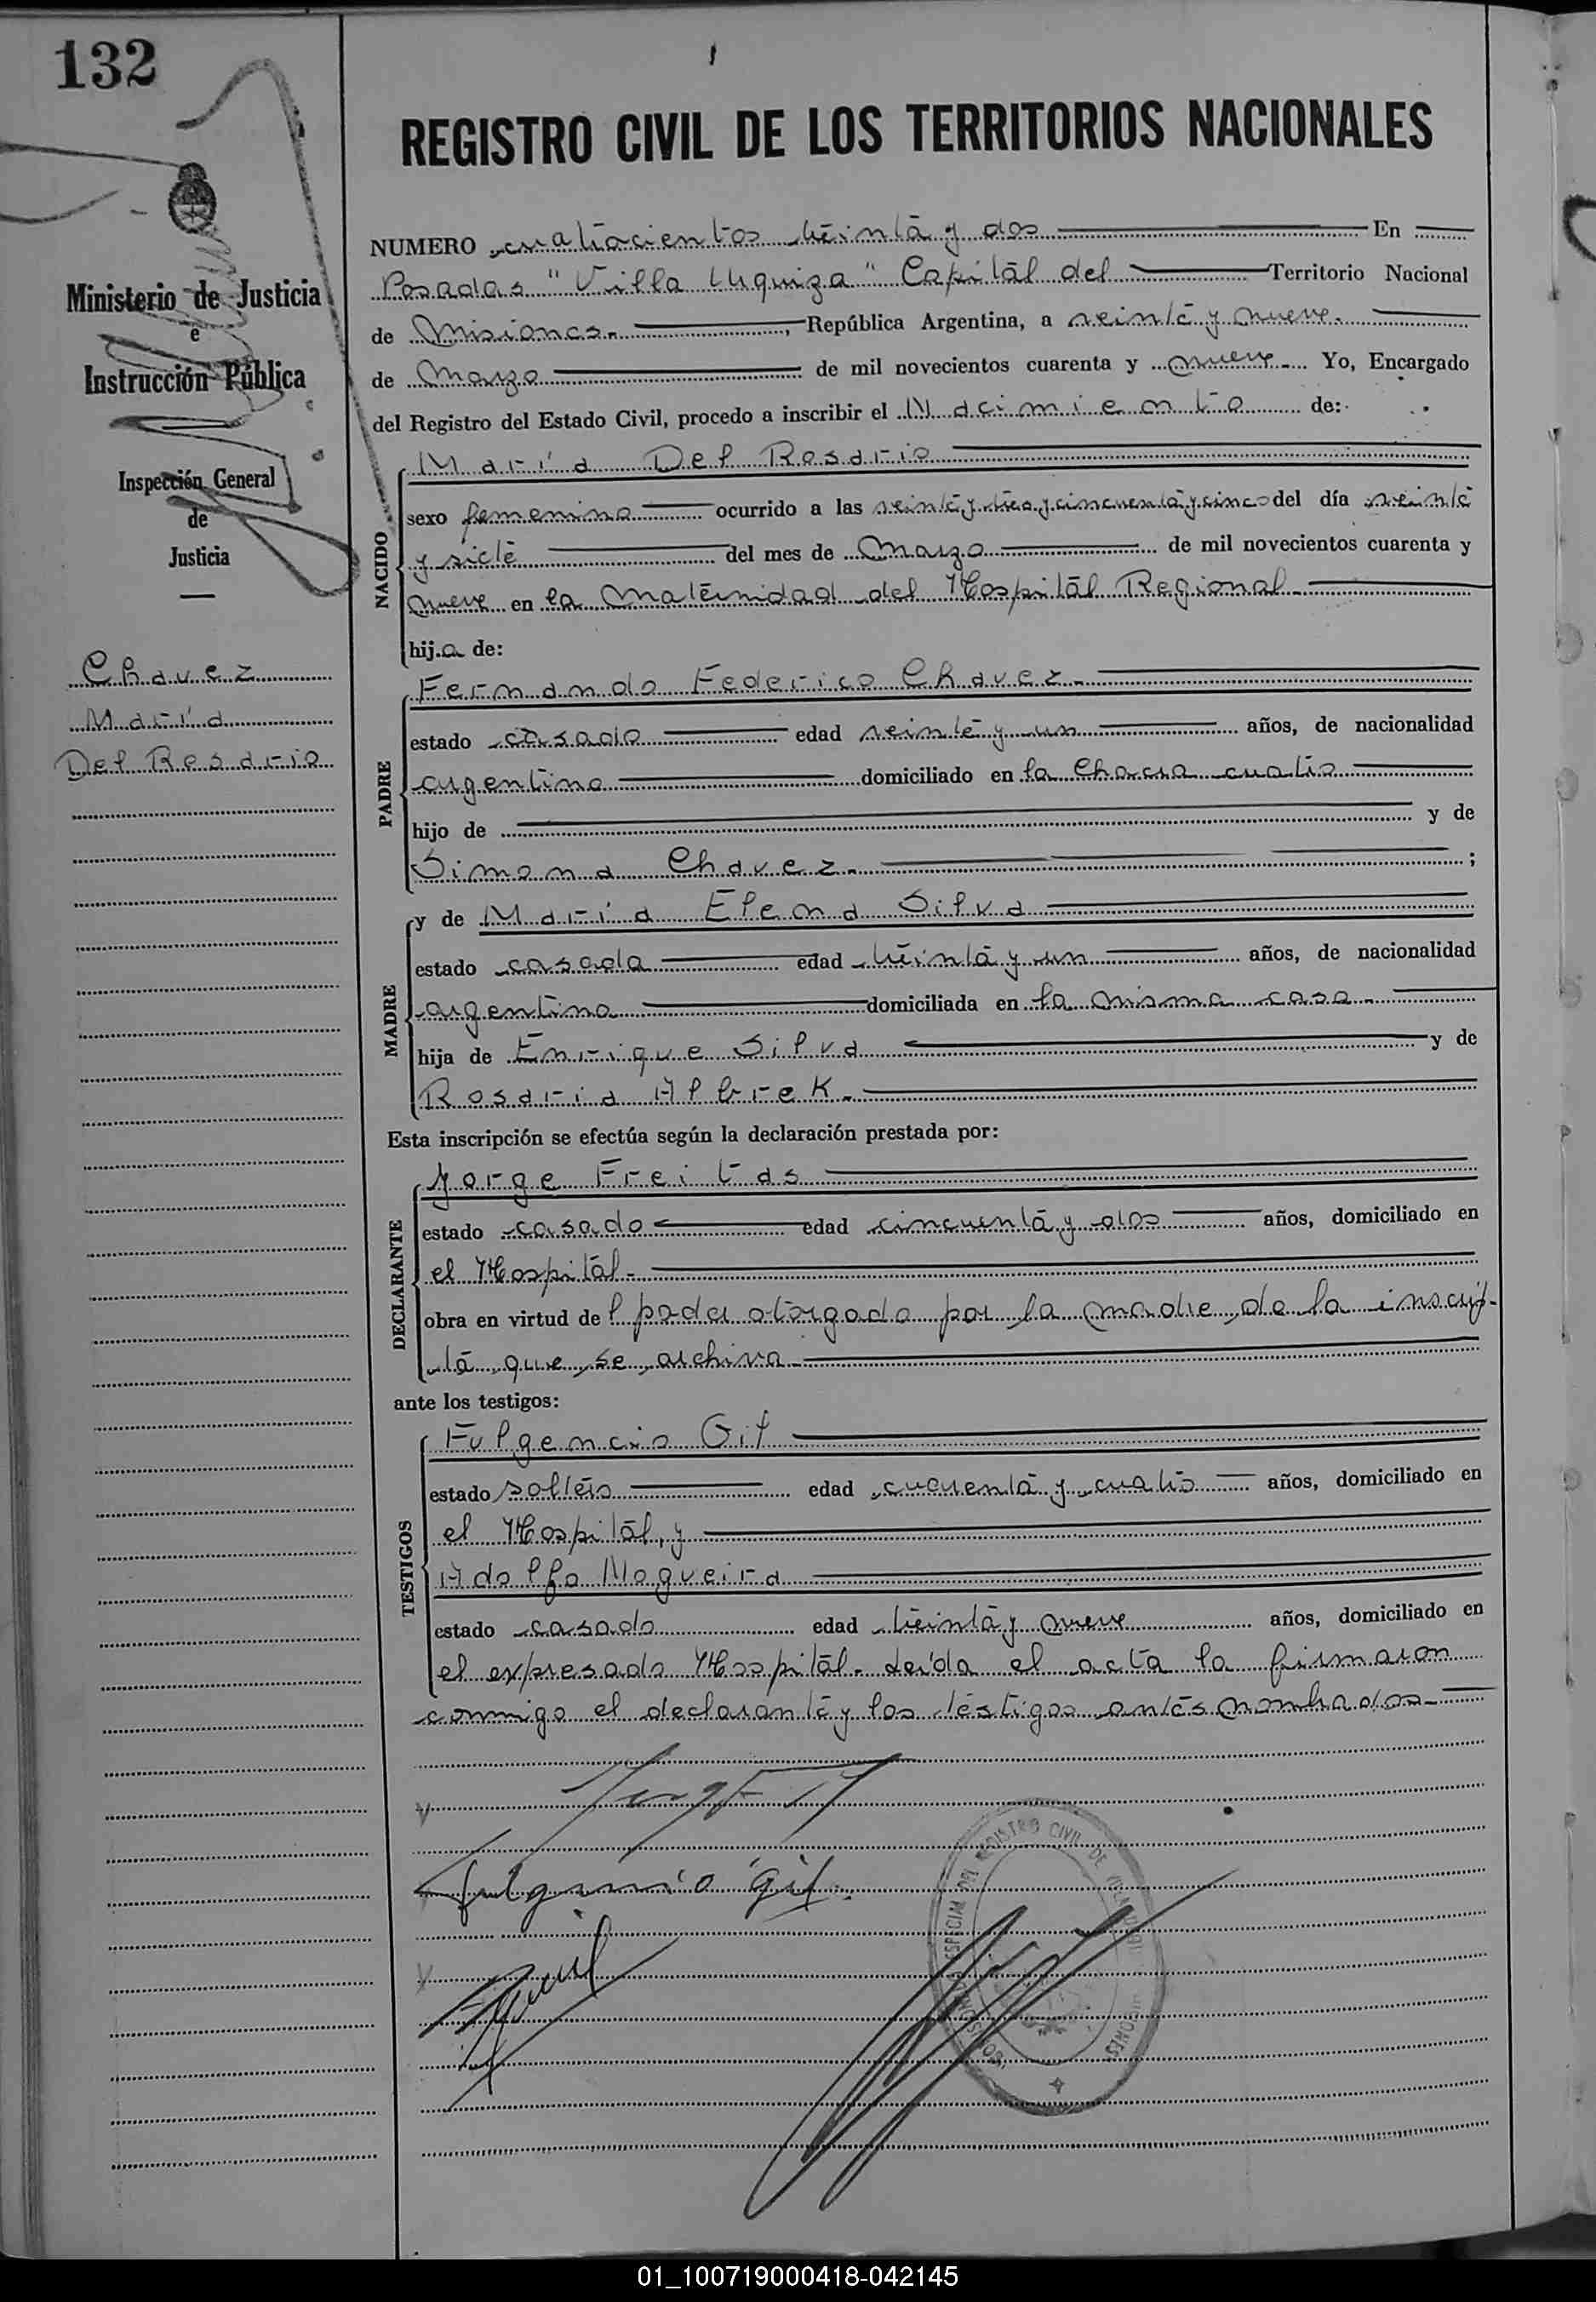 132
REGISTRO CIVIL DE LOS TERRITORIOS NACIONALES
Ministerio de Justicia
e
Instrucción Pública
Inspección General
de
Justicia
Chavez
María
Del Rosario
NUMERO cuatrocientos treinta y dos En
Posadas "Villa Urquiza" Capital del Territorio Nacional
de Misiones.- , República Argentina, a veinte y nueve.
de Marzo de mil novecientos cuarenta y nueve - Yo, Encargado
del Registro del Estado Civil, procedo a inscribir el Nacimiento de:
NACIDO
María Del Rosario
sexo femenino ocurrido a las veinte y tres y cincuenta y cinco del día veinte
y siete del mes de Marzo de mil novecientos cuarenta y
nueve en la Maternidad del Hospital Regional -
hija de:
PADRE
Fernando Federico Chavez -
estado casado edad veinte y un años, de nacionalidad
argentino domiciliado en la Chacra cuatro
hijo de y de
Simona Chavez. ;
MADRE
y de María Elena Silva
estado casada edad treinta y un años, de nacionalidad
argentina domiciliada en la misma casa -
hija de Enrique Silva y de
Rosaria Albrek.
Esta inscripción se efectúa según la declaración prestada por:
DECLARANTE
Jorge Freitas
estado casado edad cincuenta y dos años, domiciliado en
el Hospital -
obra en virtud del poder otorgado por la madre de la inscrip-
ta que se archiva
ante los testigos:
TESTIGOS
Fulgencio Gil
estado soltero edad cuarenta y cuatro años, domiciliado en
el Hospital, y
Adolfo Nogueira
estado casado edad treinta y nueve años, domiciliado en
el expresado Hospital. Leída el acta la firmaron
conmigo el declarante y los testigos antes nombrados -
Fulgencio Gil.
ESPECIAL DEL REGISTRO CIVIL DE
MISIONES
01_100719000418-042145